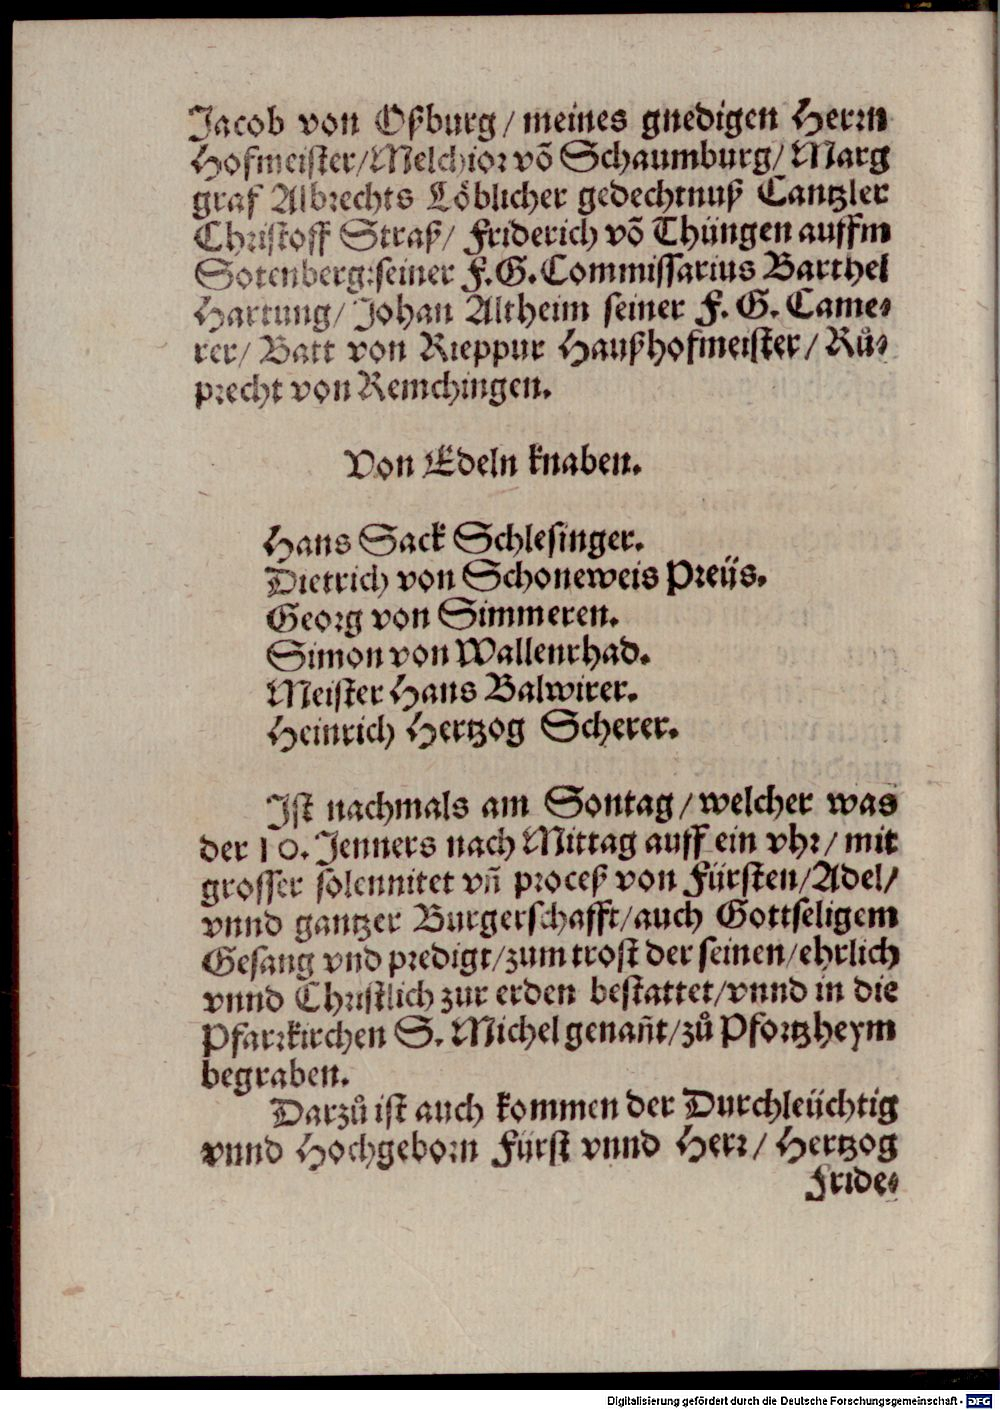 Jacob von Oßburg / meines gnedigen Herꝛn
Hofmeister/Melchioꝛ võ Schaumburg/ Marg
graf Albꝛechts Löblicher gedechtnuß Cantzler
Chꝛistoff Straß/ Friderich võ Thüngen auffm
Sotenberg:seiner F.G.Commissarius Barthel
Hartung/ Johan Altheim seiner F. G. Came⸗
rer/ Batt von Rieppur Haußhofmeister/ Ruͤ⸗
pꝛecht von Remchingen.
Von Edeln knaben.
Hans Sack Schlesinger.
Dietrich von Schoneweis Pꝛeüs.
Geoꝛg von Simmeren.
Simon von Wallenrhad.
Meister Hans Balwirer.
Heinrich Hertzog Scherer.
Ist nachmals am Sontag / welcher was
der 10. Jenners nach Mittag auff ein vhꝛ / mit
grosser solennitet vñ pꝛoceß von Fürsten/Adel/
vnnd gantzer Burgerschafft/auch Gottseligem
Gesang vnd pꝛedigt/zum trost der seinen/ehrlich
vnnd Chꝛistlich zur erden bestattet/vnnd in die
Pfarꝛkirchen S. Michel genañt/zů Pfoꝛtzheym
begraben.
Darzů ist auch kommen der Durchleüchtig
vnnd Hochgeboꝛn Fürst vnnd Herꝛ / Hertzog
Fride⸗
Digitalisierung gefördert durch die Deutsche Forschungsgemeinschaft - DFG